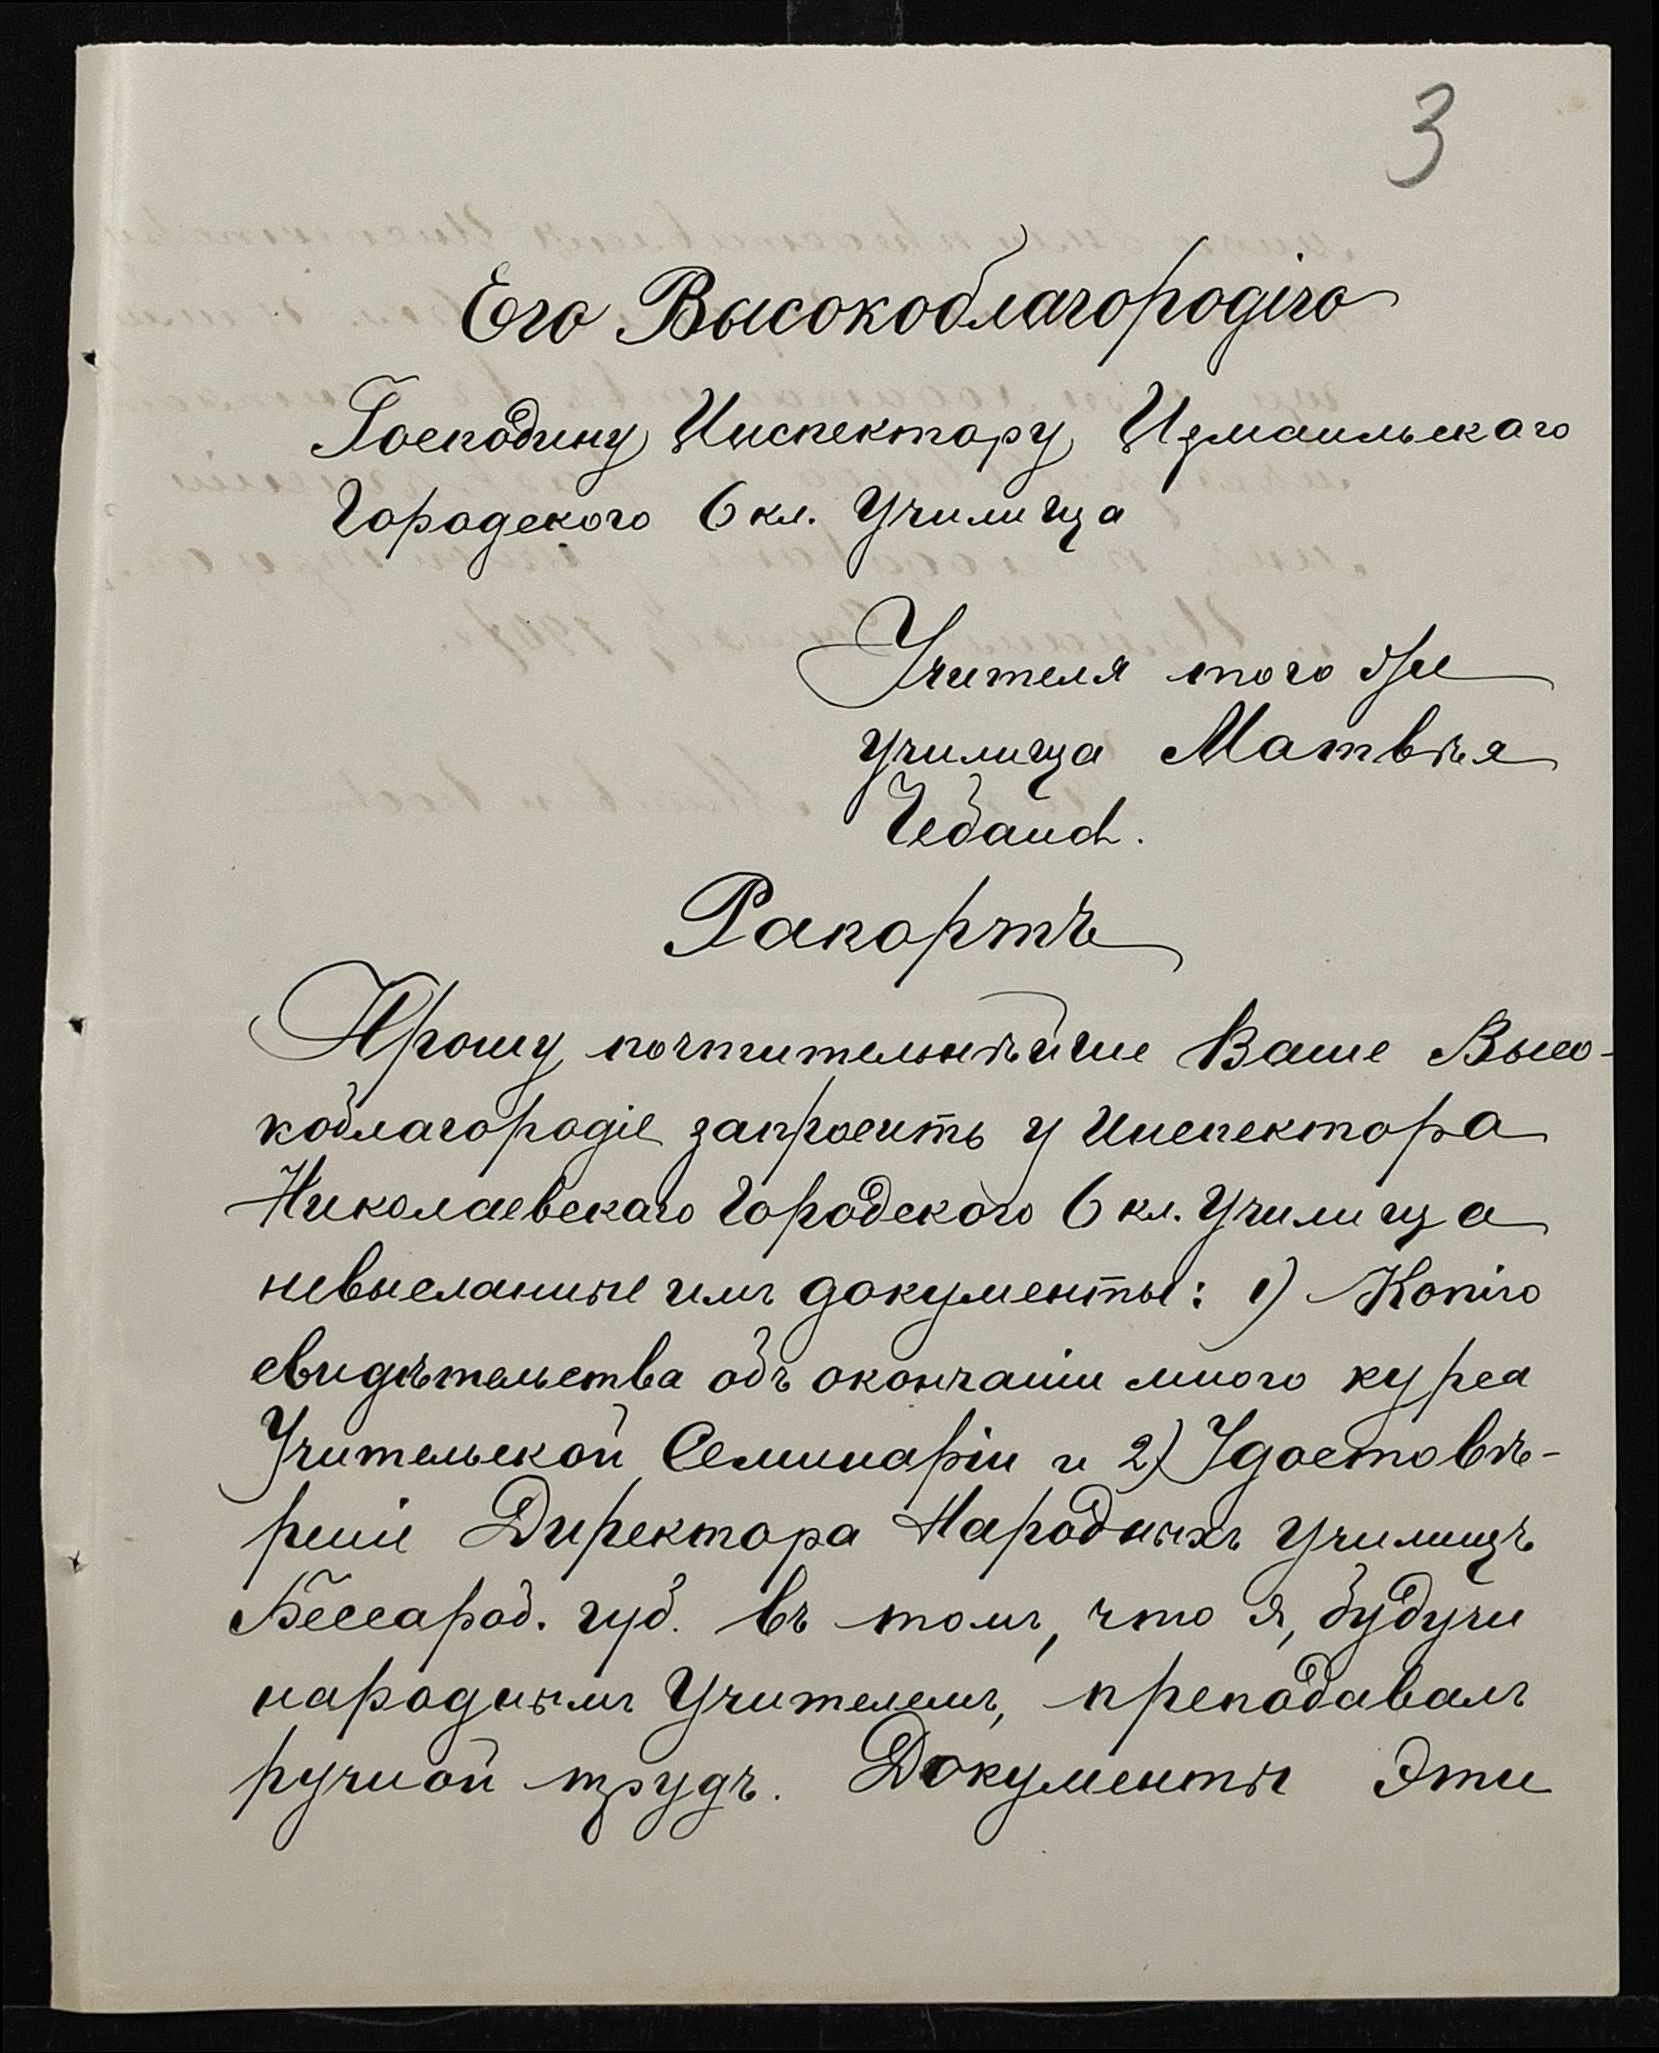 3
Его Высокоблагородію
Господину Инспектору Измаильскаго
Городского 6 кл. Училища
Учителя того же
училища Матвѣя
Чебана.
Рапортъ
Прошу почтительнѣйше Ваше Высо-
коблагородіе запросить у Инспектора
Николаевскаго Городского 6 кл. Училища
невысланные имъ документы: 1) Копію
свидѣтельства объ окончаніи мною курса
Учительской Семинаріи и 2) Удостовѣ-
реніе Директора Народныхъ Училищъ
Бессараб. губ. въ томъ, что я, будучи
народнымъ Учителемъ, преподавалъ
ручной трудъ. Документы Эти